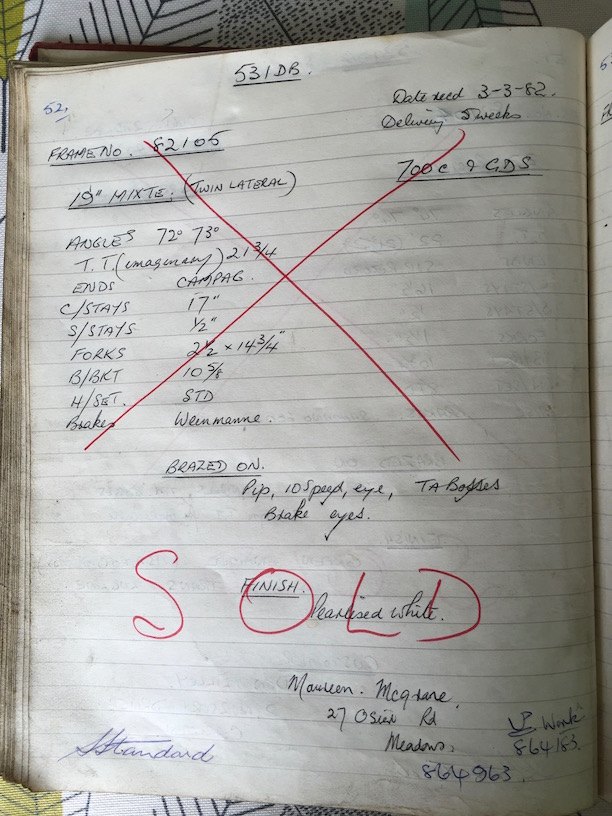 531 DB.
52,
Date recd 3-3-82.
Delivery 5 weeks
FRAME NO. 82105
700c & GDS
19" MIXTE. (TWIN LATERAL)
ANGLES 72° 73°
T.T. (imaginary) 21 3/4
ENDS CAMPAG.
C/STAYS 17"
S/STAYS 1/2"
FORKS 2 1/2 x 14 3/4"
B/BKT 10 5/8
H/SET. STD
Brakes Weinmanne.
BRAZED ON.
Pip, 10 Speed, eye, TA Bosses
Brake eyes.
SOLD
FINISH.
Pearlised white.
Maureen. Mcgrane.
27 Osier Rd
Meadows.
Work
864183.
864963.
Standard